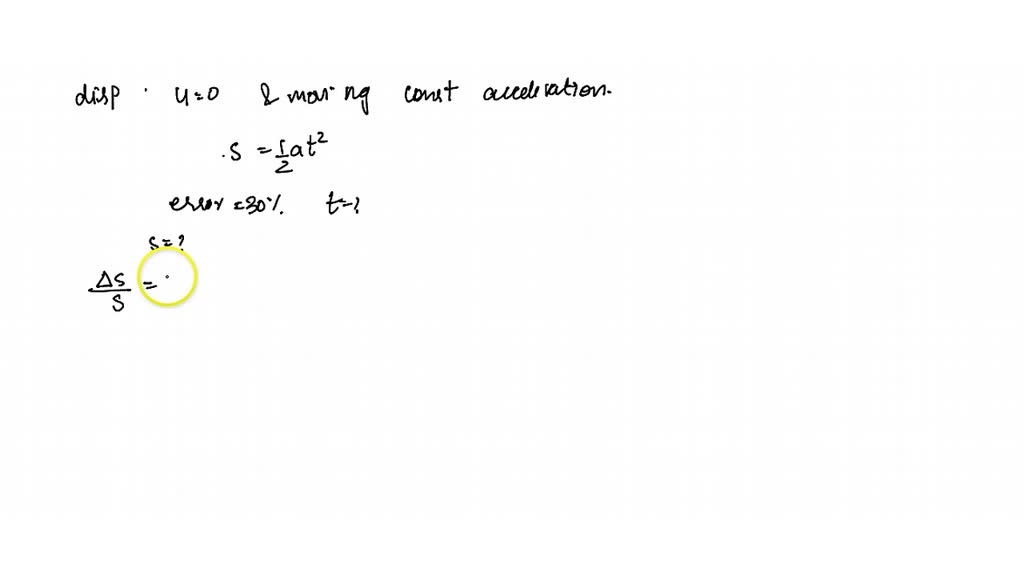 disp . u=0 & moving const acceleration.
.s = 1/2 at²
error =30%. t=?
s=?
Δs/s = .